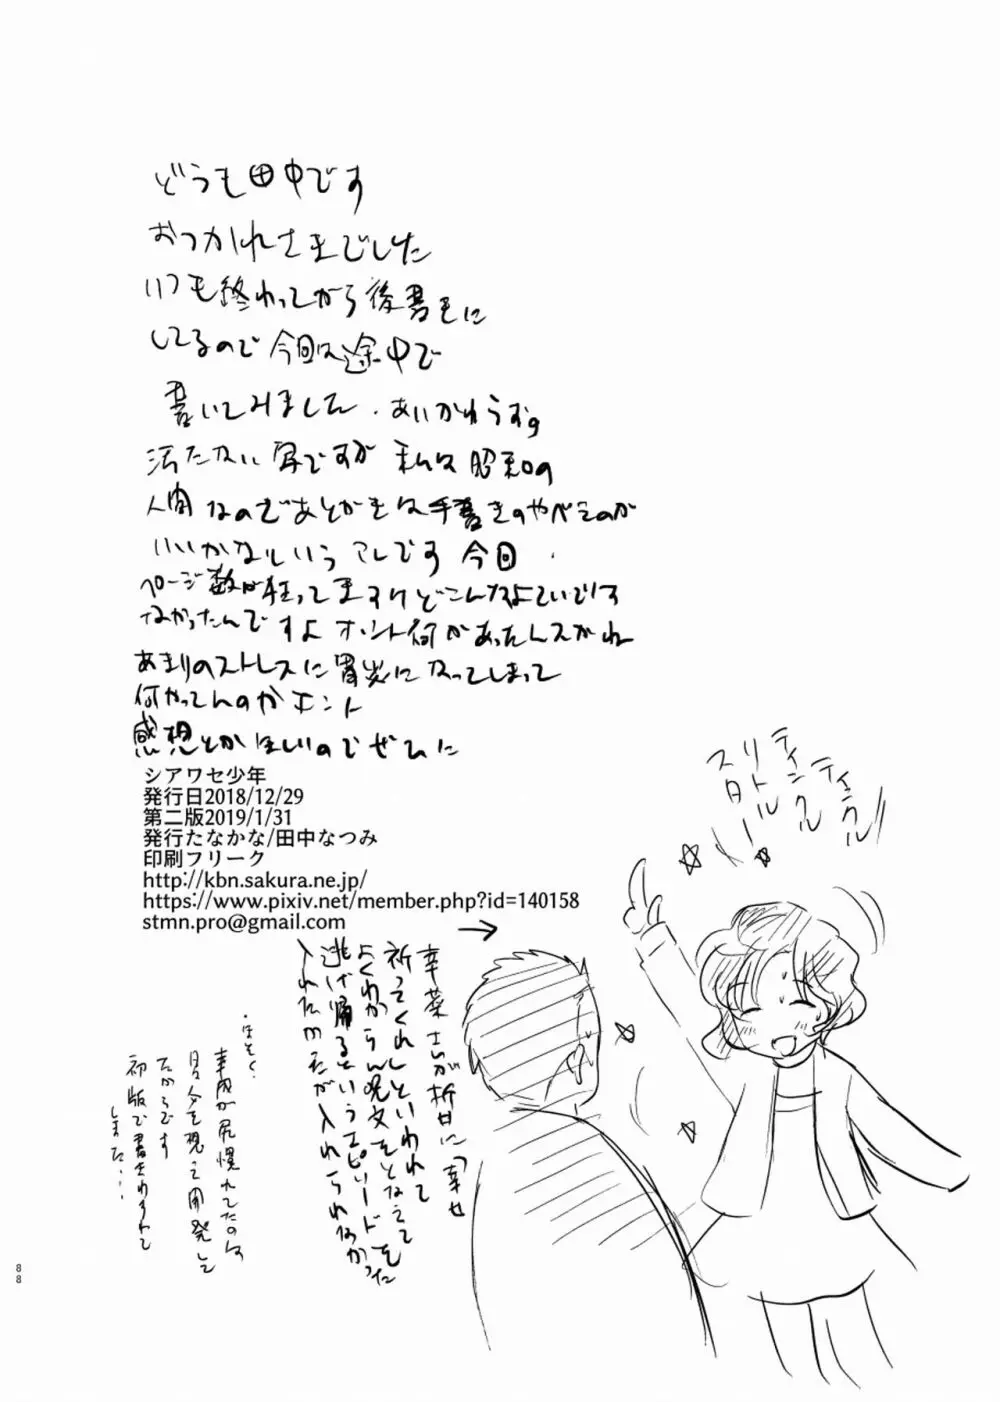 どうも田中です
おつかれさまでした
いつも終わってから後書きに
してるので今回は途中で
書いてみました.あいかわらずの
活たない字ですが私は昭和の
人間なのであとがきは手書きのやべえのが
いいかなというアレです 今回
ページ数が狂ってますけどこんなよていでは
なかったんですよホント何があったんスかね
あまりのストレスに胃炎になってしまって
何やってんのかホント
感想とかほしいのでぜひに
シアワセ少年
発行日2018/12/29
第二版2019/1/31
発行たなかな/田中なつみ
印刷フリーク
http://kbn.sakura.ne.jp/
https://www.pixiv.net/member.php?id=140158
stmn.pro@gmail.com
→
ティンクル
ティンクル
リトル
スター
幸菜さいが折せに「幸せ
祈ってくれ」といわれて
よくわからん呪文をとなえて
逃げ帰るというエピソードを
入れたかったが入れられなかった
・ほそく.
幸成が尻慣れてたのは
自分を視て開発して
たからです
初版で書きわすれて
しまた…
88